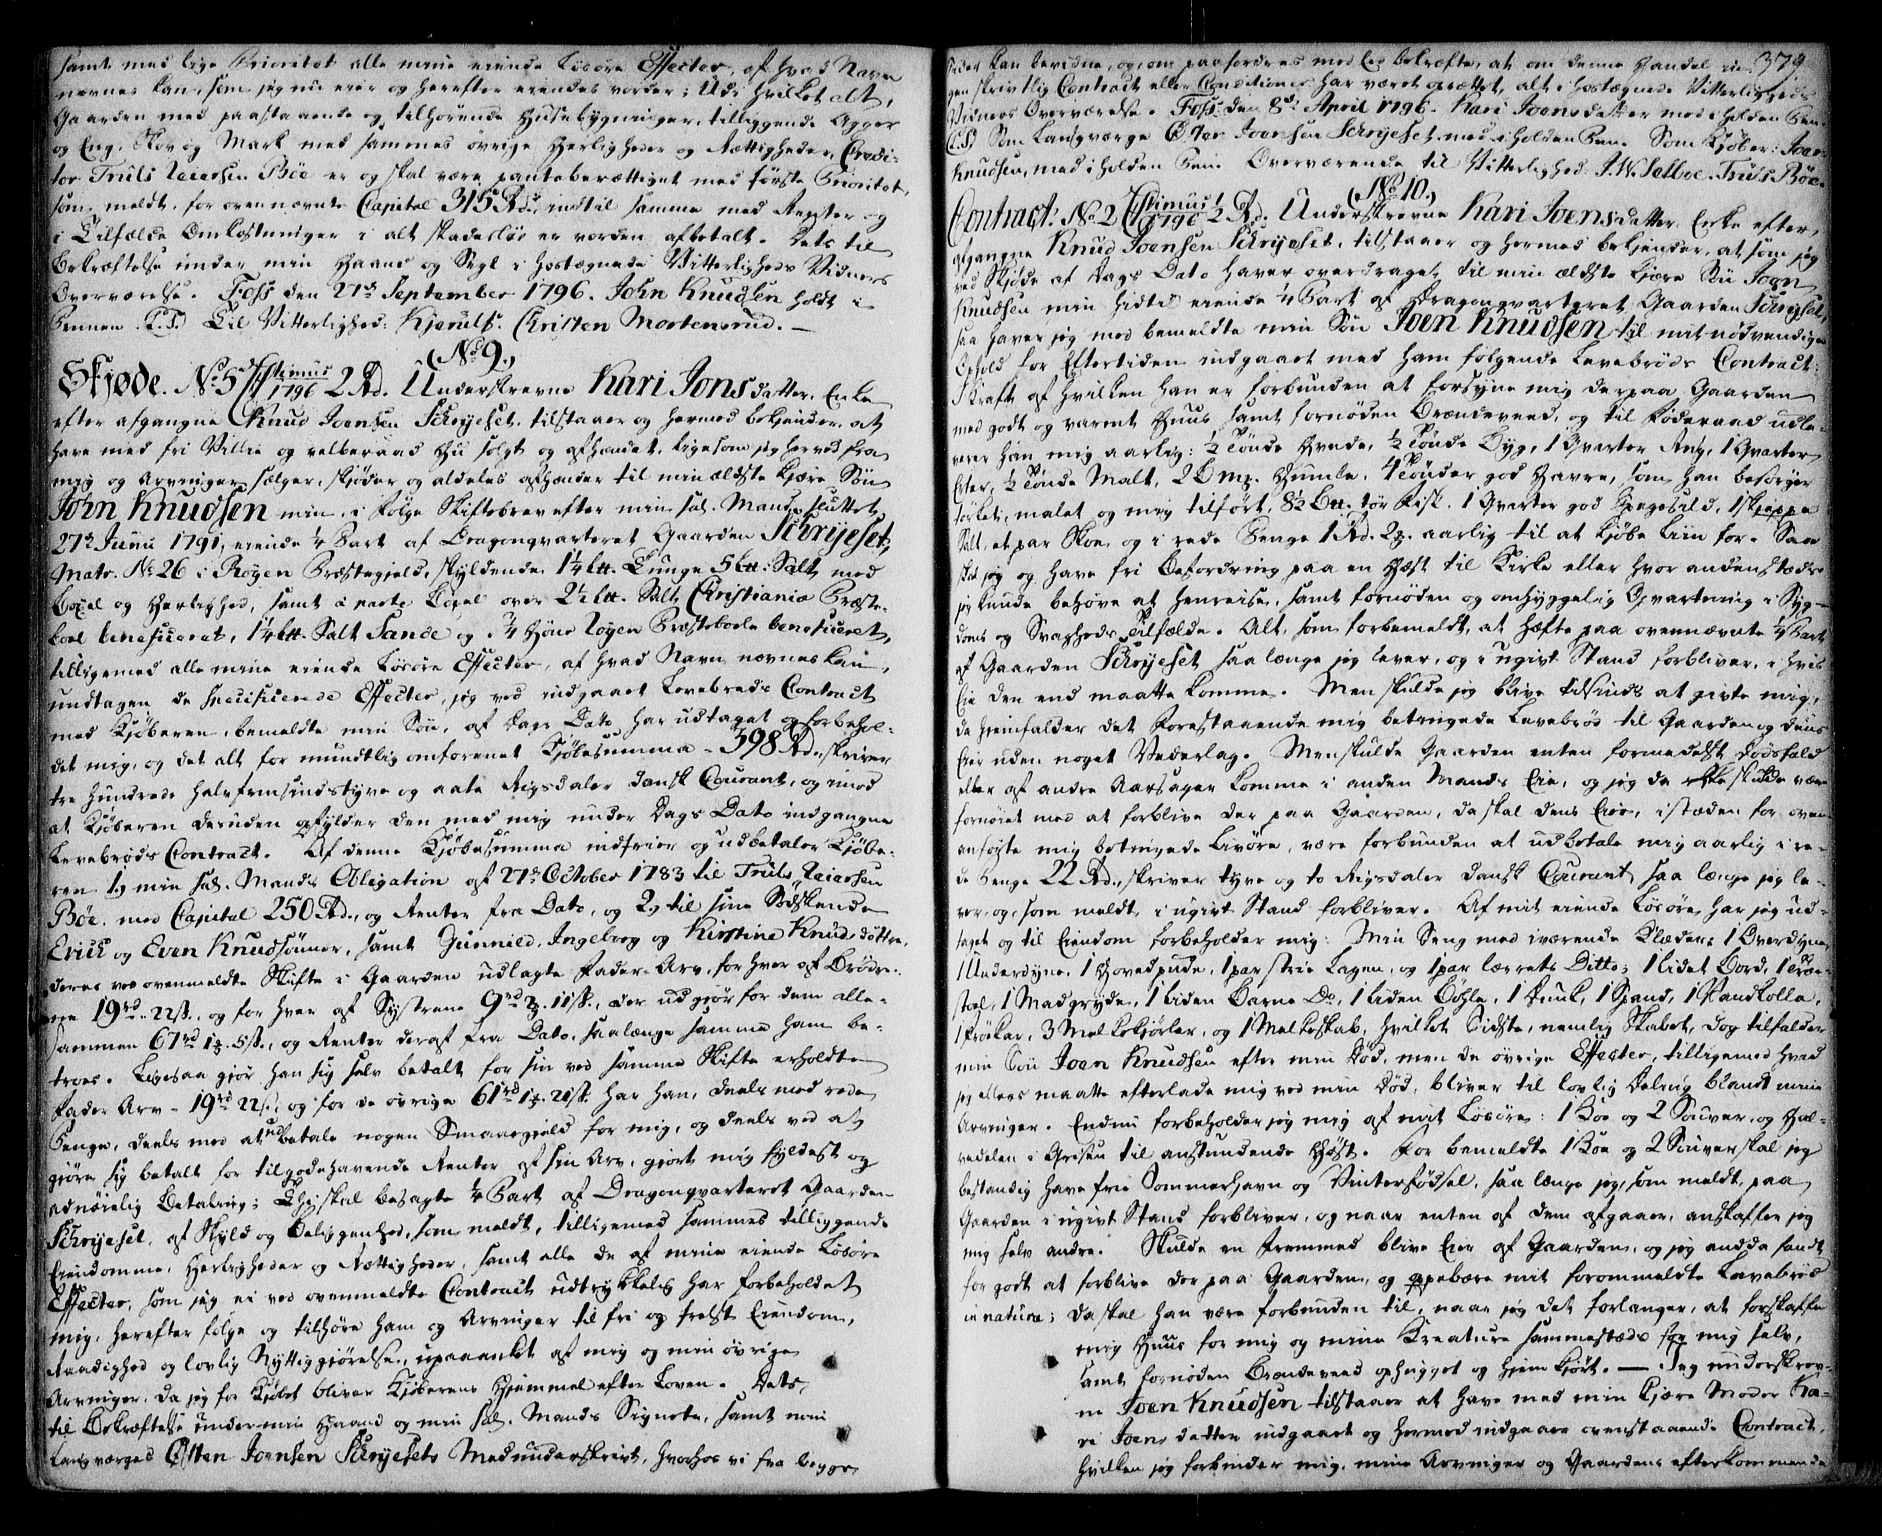 samt med lige Prioritet alle mine eiende Løsøre Effecter, af hvad Navn
nævnes kan, som jeg nu eier og herefter eiendes vorder; Udi hvilket alt,
Gaarden med paastaaende og tilhørende Huusebygninger, tilliggende Agger
og Eng, Skov og Mark med sammes øvrige Herligheder og Rettigheder, Credi-
tor Truls Bøe er og skal være panteberettiget med første Prioritet,
som meldt, for ovennævnte Capital 315 Rd., indtil samme med Renter og
i Tilfælde Omkostninger i alt skadesløs er vorden afbetalt. Dets til
Bekræftelse under min Haand og Segl i hostegnede Vitterligheds Vidners
Overværelse. Foss den 27de September 1796. John Knudsen holdt i
Pennen (L.S.) Til Vitterlighed: Kjerulf. Christen Mortensrud. —
(No 9.)
Skjøde. No 5 1796 2 Rd. Underskrevne Kari Jonsdatter, Enke
efter afgangne Knud Joensen Schryeset, tilstaaer og hermed bekjender, at
have med fri Villie og velberaad Hu solgt og afhændet, ligesom jeg herved fra
mig og Arvinger sælger, skjøder og aldeles afhænder til min ældste kjære Søn
John Knudsen min, i Følge Skiftebrev efter min sal. Mand sluttet
27de Junii 1791, eiende 1/4 Part af Dragonqvarteret Gaarden Schryeset,
Matr. No 26 i Røyen Præstegjeld, skyldende 1 1/4 Ltt. Tunge 5 Ltt. Salt med
Bøxel og Herlighed, samt à parte Bøxel over 2 1/2 Ltt. Salt Christianiæ Præste-
boel beneficeret, 1 1/4 Ltt. Salt Sande og 1/4 Høne Røyen Præsteboele beneficeret,
tilligemed alle mine eiende Løsøre Effecter, af hvad Navn nævnes kan,
undtagen de specificerede Effecter, jeg ved indgaaet Levebrøds Contract
med Kjøberen, bemeldte min Søn, af Dags Dato, har udtaget og forbehol-
det mig, og det alt for mundtlig omforenet Kjøbesumma 398 Rd., skriver
tre hundrede halvfemsindstyve og aate Rigsdaler dansk Courant, og imod
at Kjøberen desuden opfylder den med mig under Dags Dato indgangne
Levebrøds Contract. Af denne Kjøbesumma indfrier og udbetaler Kjøbe-
ren 1, min sal. Mands Obligation af 27de October 1783 til Truls
Bøe, med Capital 250 Rd., og Renter fra Dato, og 2, til sine Sødskende
Erich og Even Knudsønner, samt Gunnild, Ingeborg og Kirstine Knudsdøttre,
deres ved ovenmeldte Skifte i Gaarden udlagte Fader-Arv, for hver af Brødre-
ne 19 rd. 22 ß., og for hver af Systrene 9 rd. 11 ß., der udgjør for dem alle-
sammen 67 rd 1. 5 ß., og Renter deraf fra Dato, saalænge samme ham be-
troes. Ligesaa gjør han sig selv betalt for sin ved samme Skifte erholdte
Fader Arv 19 rd 22 ß, og for de øvrige 61 rd 1. 21 ß. har han, deels med rede
Penge, deels med at udbetale nogen Smaaegjeld for mig, og deels ved at
gjøre sig betalt for tilgodehavende Renter af sin Arv, giort mig Fyldest og
adnøielig Betaling; Thi skal besagte 1/4 Part af Dragonqvarteret Gaarden
Schryeset, af Skyld og Beliggenhed, som meldt, tilligemed sammes tilliggende
Eiendomme, Herligheder og Rettigheder, samt alle de af mine eiende Løsøre
Effecter, som jeg ei ved ovenmeldte Contract udtrykkelig har forbeholdet
mig, herefter følge og tilhøre ham og Arvinger til fri og frelst Eiendom,
Raadighed og lovlig Nyttiggjørelse, upaaanket af mig og min øvrige
Arvinger, da jeg for Kjøbet bliver Kjøberens Hjemmel efter Loven. Dets
til Bekræftelse under min Haand og min sal. Mands Signete, samt min
Laugværges Østen Joensen Schryesets Medunderskrivt, hvorhos vi fra begge
379.
Sider kan bevidne, og, om paafordres med Eed bekræfte, at om denne Handel in-
gen skrivtlig Contract eller Conditioner har været oprettet, alt i hostegnede Vitterligheds
Vidners Overværelse. Foss den 8de April 1796. Kari Joensdatter med iholden Pen.
(L.S.) Som Laugværge Østen Joensen Schryeset med iholden Pen. Som Kjøber: Joen
Knudsen, med iholden Pen. Overværende til Vitterlighed: J. W. Selboe. Truls Bøe.
(No 10.)
Contract. No 2 1796 1/2 Rd. Underskrevne Kari Joensdatter, Enke efter
afgangne Knud Joensen Schryeset, tilstaaer og hermed bekjender, at som jeg
ved Skjøde af Dags Dato haver overdraget til min ældste kjære Søn Joen
Knudsen min hidtil eiende 1/4 Part af Dragonqvarteret Gaarden Schryeset,
saa haver jeg med bemeldte min Søn Joen Knudsen til mit nødvendige
Ophold for Eftertiden indgaaet med ham følgende Levebrøds Contract:
I Kraft af hvilken han er forbunden at forsyne mig derpaa Gaarden
med godt og varmt Huus samt fornøden Brændeveed, og til Føderaad udle-
verer han mig aarlig: 1/2 Tønde Hvede, 1/2 Tønde Byg, 1 Qvarter Rug, 1 Qvarter
Erter, 1/2 Tønde Malt, 2 Bmp. Humle, 4 Tønder god Havre, som han besørger
tørket, malet og mig tilført, 8 1/2 Ltt. tør Fisk, 1 Qvarter god Spegesild, 1 skjeppe
Salt, et par Skoe, og i rede Penge 1 Rd. 2 aarlig til at kjøbe Liin for. Saa
skal jeg og have fri Befordring paa en Hest til Kirke eller hvor andenstædts
jeg kunde behøve at henreise, samt fornøden og omhyggelig Opvartning i Syg-
doms og Svagheds Tilfælde. Alt, som forbemeldt, at hæfte paa ovennævnte 1/4 Part
af Gaarden Schryeset saa længe jeg lever, og i ugivt Stand forbliver, i hvis
Eie den end maatte komme. Men skulde jeg blive tilsinds at givte mig,
da hjemfalder det Forestaaende mig betingede Levebrød til Gaarden og dens
Eier uden noget Vederlag. Men skulde Gaarden enten formedelst Dødsfald
eller af andre Aarsager komme i anden Mands Eie, og jeg da ikke skulde være
fornøiet med at forblive der paa Gaarden, da skal dens Eier, istæden for oven
anførte mig betingede Livøre, være forbunden at udbetale mig aarlig i re-
de Penge 22 Rd., skriver tyve og to Rigsdaler dansk Courant, saa længe jeg le-
ver, og, som meldt, i ugivt Stand forbliver. Af mit eiende Løsøre har jeg ud-
taget og til Eiendom forbeholder mig: Min Seng med iværende Klæder, 1 Overdyne,
1 Underdyne, 1 Hovedpude, 1 par strie Lagen, og 1 par lærrets Ditto; 1 lidet Bord, 1 Træe-
stoel, 1 Madgryde, 1 liden Barne Do, 1 liden Bøhle, 1 Dunk, 1 Spand, 1 Vandkolle,
3 Melkekjørler, og 1 Melkeskab, hvilket Sidste, nemlig Skabet, dog tilfalder
min Søn Joen Knudsen efter min Død, men de øvrige Effecter, tilligemed hvad
jeg ellers maatte efterlade mig ved min Død, bliver til lovlig Deling blandt mine
Arvinger. Endnu forbeholder jeg mig af mit Løsøre: 1 Koe og 2 Sauver, og Hal-
vedelen i Grisen til anstundende Høst. For bemeldte 1 Koe og 2 Sauver skal jeg
bestandig have frie Sommerhavn og Vinterfødsel, saa længe jeg, som meldt, paa
Gaarden i ugivt Stand forbliver, og naar enten af dem afgaaer, anskaffer jeg
mig selv andre. Skulde en fremmed blive Eier af Gaarden, og jeg endda fandt
for godt at forblive der paa Gaarden, og oppebære mit forommeldte Levebrød
in natura; da skal han være forbunden til, naar jeg det forlanger, at forskaffe
mig Huus for mig og mine Kreature sammestæds for mig selv,
samt fornøden Brændeveed ophugget og hjemkjørt. — Jeg underskrev-
ne Joen Knudsen tilstaaer at have med min kjære Moder Ka-
ri Joensdatter indgaaet og hermed indgaaer ovenstaaende Contract,
hvilken jeg forbinder mig, mine Arvinger og Gaardens efterkommende